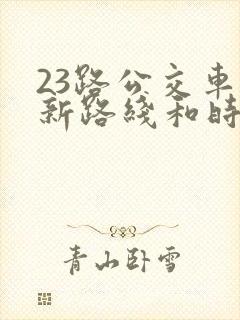 23路公交车
新路綫和時
青山卧雪